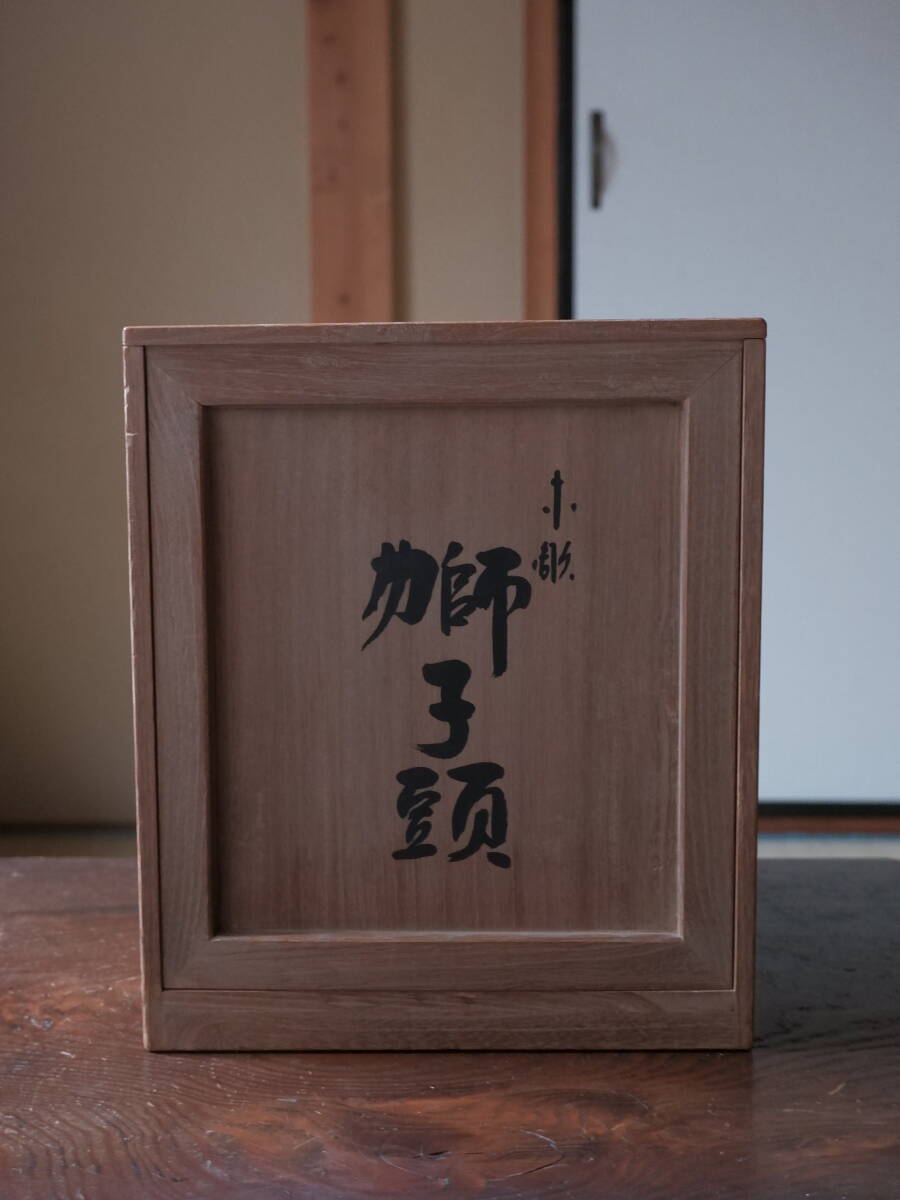 木彫
獅子頭